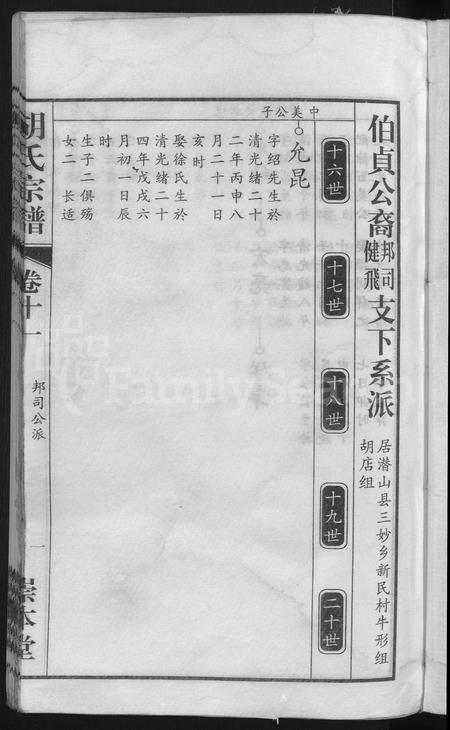 伯貞公裔邦司健飛支下系派
居潜山县三妙乡新民村牛形组
胡店组
十六世
十七世
十八世
十九世
二十世
中美公子
允昆
字绍先生於
清光绪二十
二年丙申八
月二十一日
亥时
娶徐氏生於
清光绪二十
四年戊戌六
月初一日辰
时
生子二俱殇
女二 长适
胡氏宗譜
卷十一
邦司公派
一
崇本堂
FamilySearch